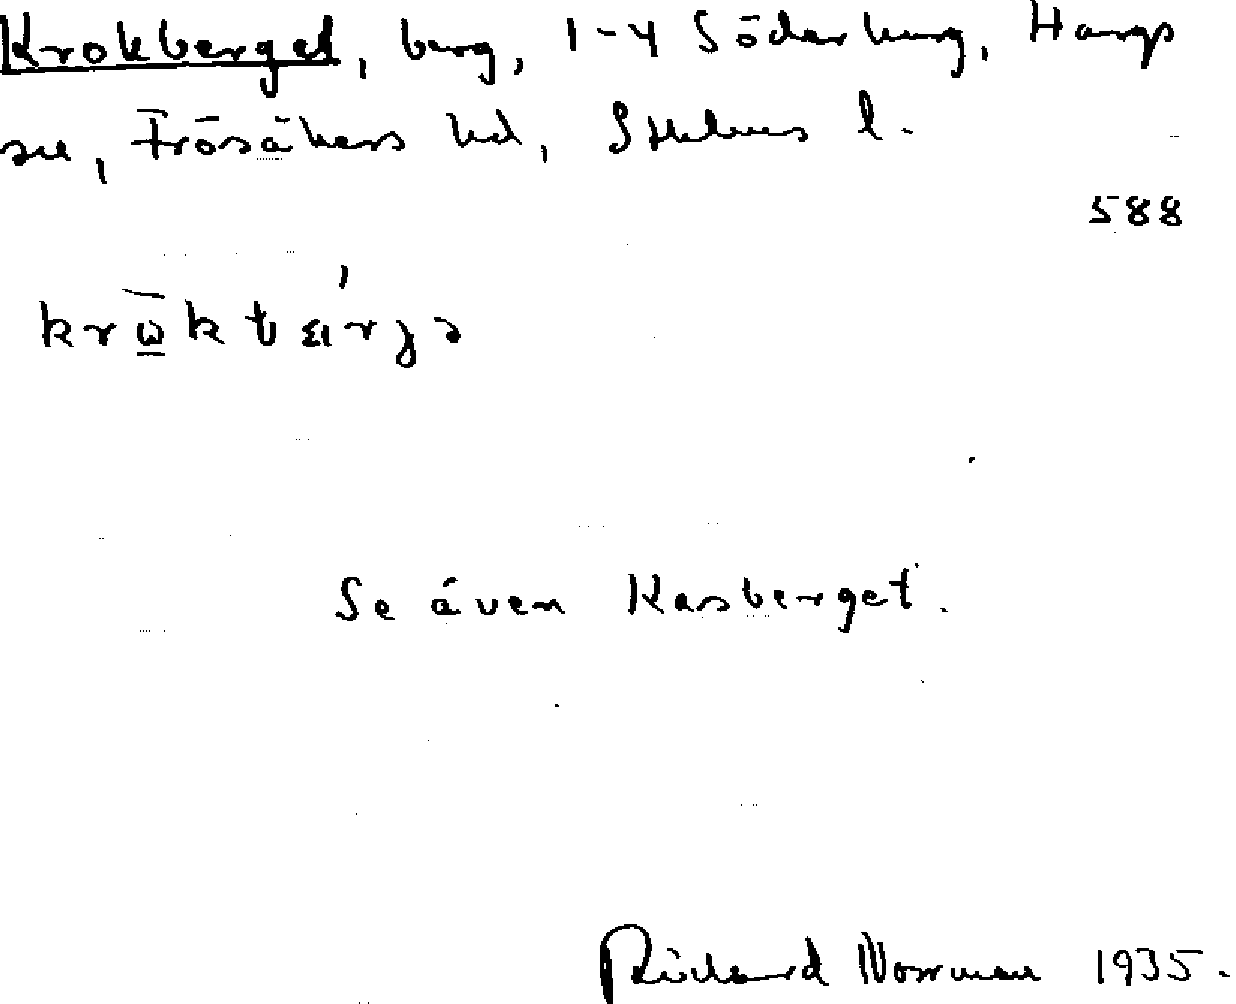 Krokberget, berg, 1-4 Söderberg, Hargs
sn, Frösåkers hd, Sthlms l.
588
Se även Kasberget.
Richard Norrman 1935.